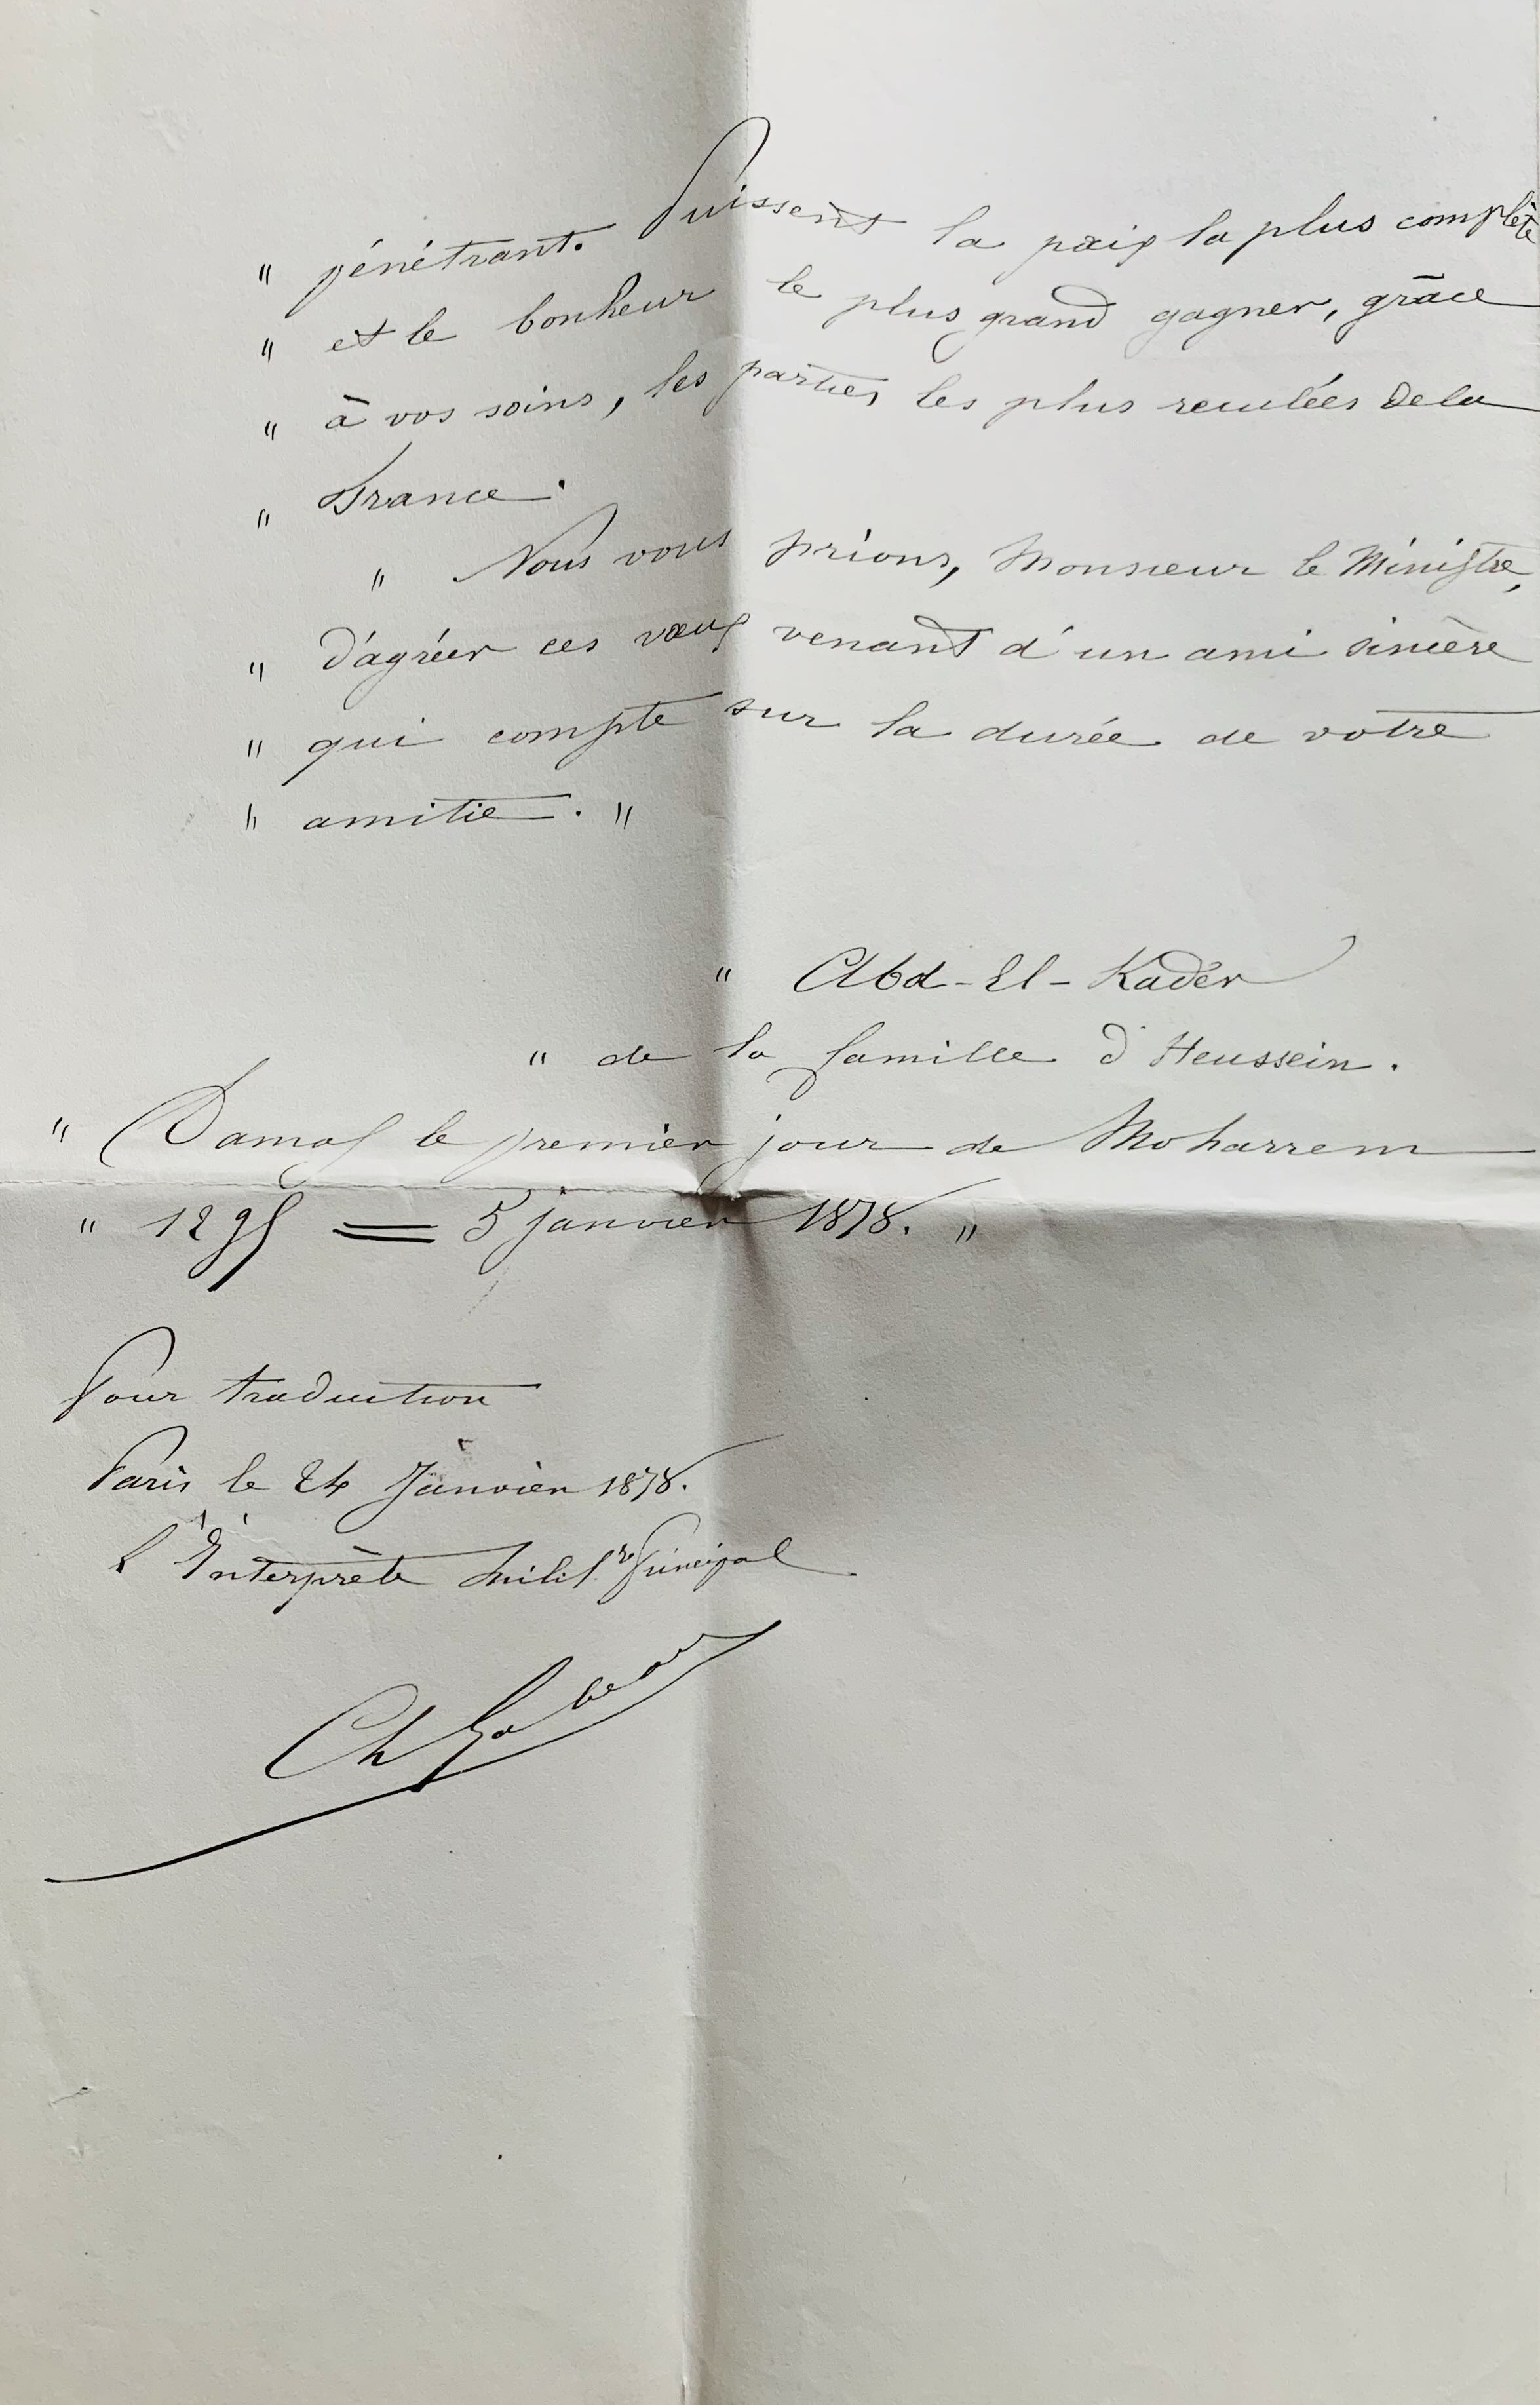 " pénétrant. Puissent la paix la plus complète
" et le bonheur le plus grand gagner, grâce
" à vos soins, les parties les plus reculées de la
" France.
" Nous vous prions, Monsieur le Ministre,
" d'agréer ces vœux venant d'un ami sincère
" qui compte sur la durée de votre
" amitié. "
" Abd-El-Kader
" de la famille d'Heussein.
" Damas le premier jour de Moharrem
" 1295 = 5 janvier 1878. "
Pour traduction
Paris le 24 Janvier 1878.
L'Interprète Milit.re Principal
Ch